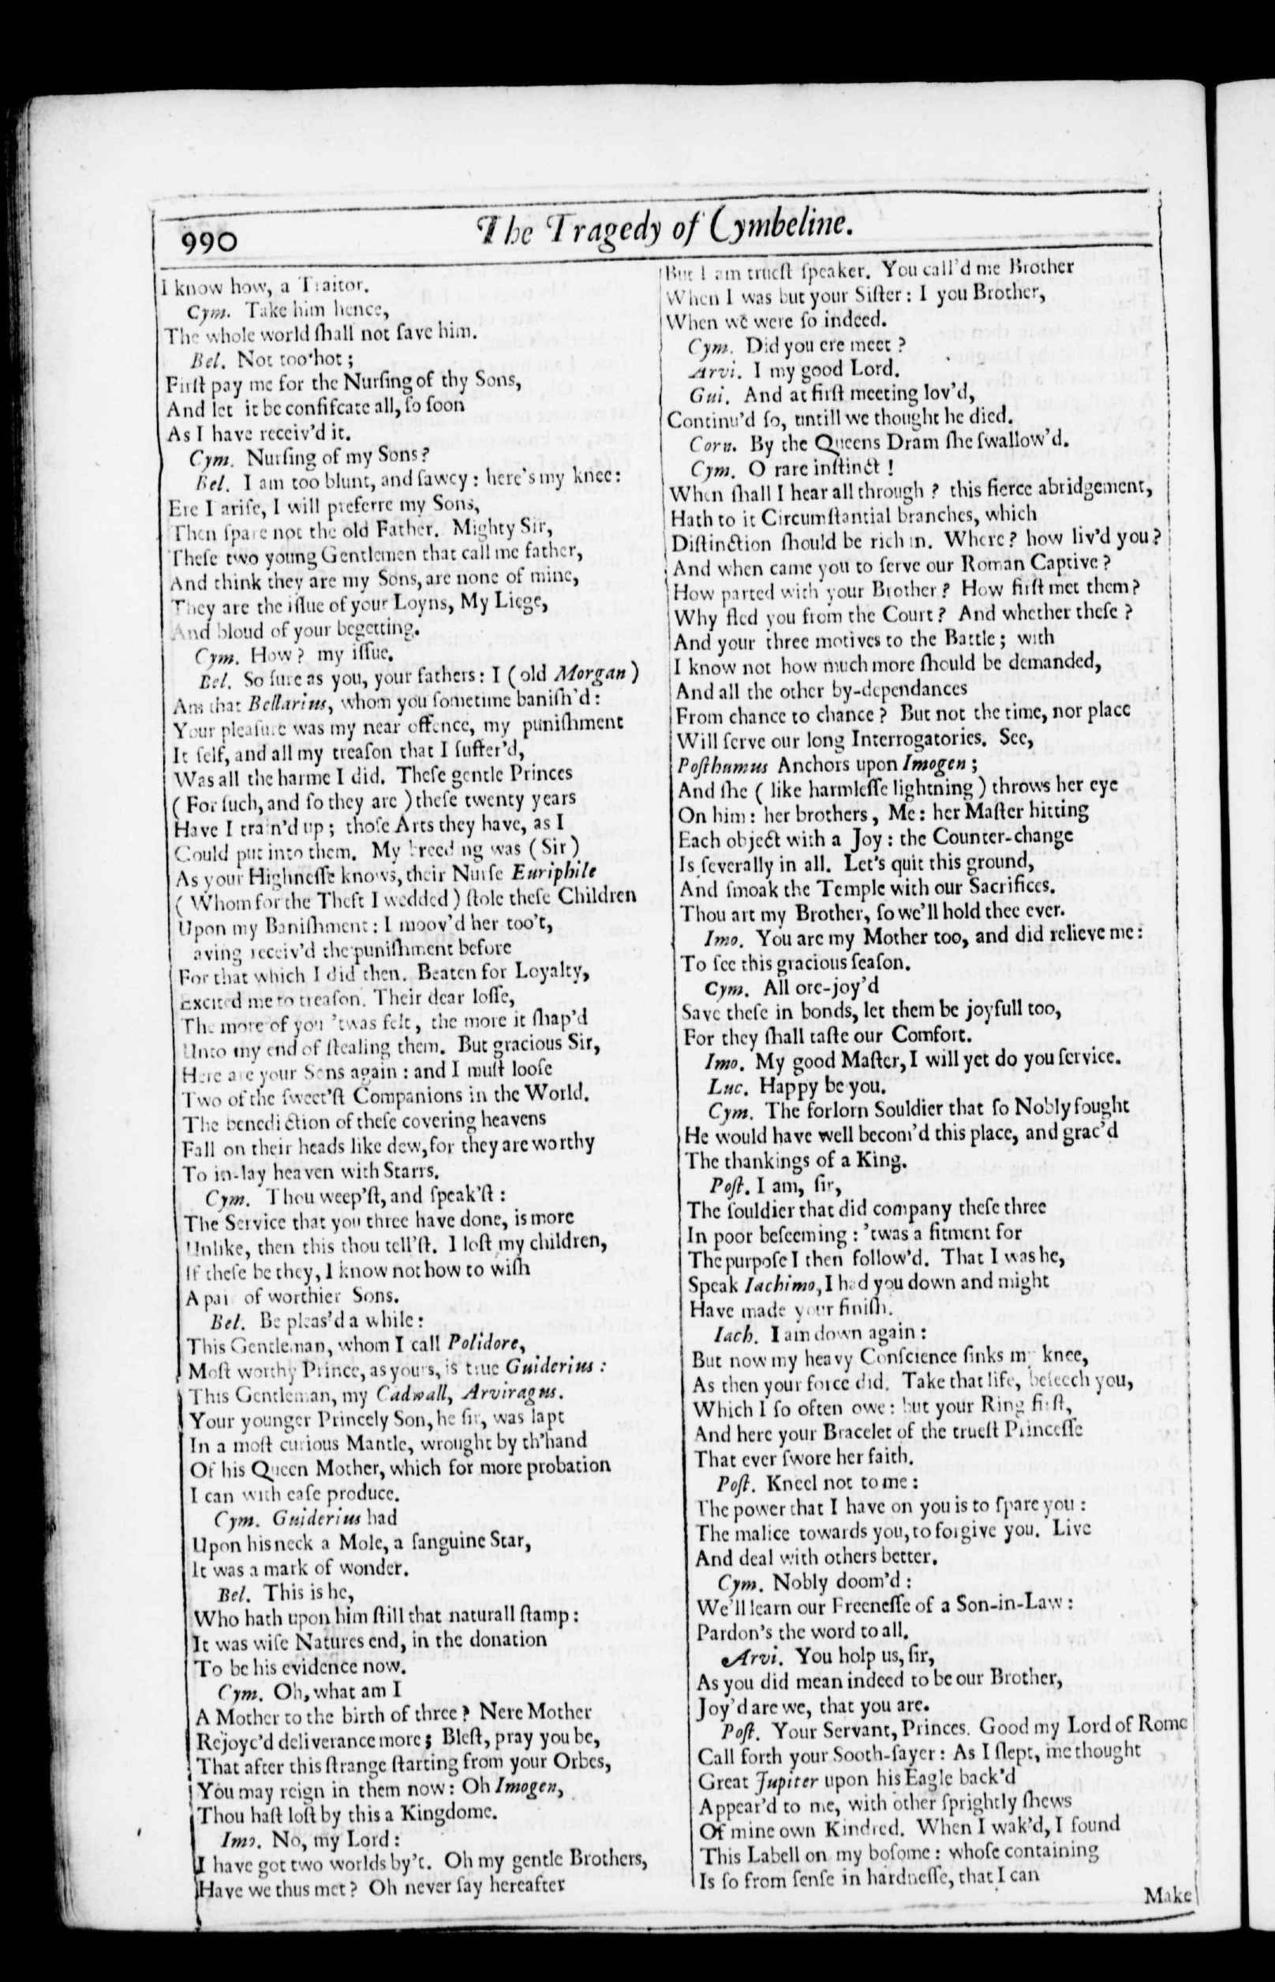 990
The Tragedy of Cymbeline.
I know how, a Traitor.
Cym. Take him hence,
The whole world ſhall not ſave him.
Bel. Not too hot;
Firſt pay me for the Nurſing of thy Sons,
And let it be confiſcate all, ſo ſoon
As I have receiv'd it.
Cym. Nurſing of my Sons?
Bel. I am too blunt, and ſawcy: here's my knee:
Ere I ariſe, I will preferre my Sons,
Then ſpare not the old Father. Mighty Sir,
Theſe two young Gentlemen that call me father,
And think they are my Sons, are none of mine,
They are the iſſue of your Loyns, My Liege,
And bloud of your begetting.
Cym. How? my iſſue.
Bel. So ſure as you, your fathers: I (old Morgan)
Am that Bellarius, whom you ſometime baniſh'd:
Your pleaſure was my near offence, my puniſhment
It ſelf, and all my treaſon that I ſuffer'd,
Was all the harme I did. Theſe gentle Princes
(For ſuch, and ſo they are) theſe twenty years
Have I train'd up; thoſe Arts they have, as I
Could put into them. My breeding was (Sir)
As your Highneſſe knows, their Nurſe Euriphile
(Whom for the Theft I wedded) ſtole theſe Children
Upon my Baniſhment: I moov'd her too't,
aving receiv'd the puniſhment before
For that which I did then. Beaten for Loyalty,
Excited me to treaſon. Their dear loſſe,
The more of you 'twas felt, the more it ſhap'd
Unto my end of ſtealing them. But gracious Sir,
Here are your Sons again: and I muſt looſe
Two of the ſweet'ſt Companions in the World.
The benediction of theſe covering heavens
Fall on their heads like dew, for they are worthy
To in-lay heaven with Starrs.
Cym. Thou weep'ſt, and ſpeak'ſt:
The Service that you three have done, is more
Unlike, then this thou tell'ſt. I loſt my children,
If theſe be they, I know not how to wiſh
A pair of worthier Sons.
Bel. Be pleas'd a while:
This Gentleman, whom I call Polidore,
Moſt worthy Prince, as yours, is true Guiderius:
This Gentleman, my Cadwall, Arviragus.
Your younger Princely Son, he ſir, was lapt
In a moſt curious Mantle, wrought by th'hand
Of his Queen Mother, which for more probation
I can with eaſe produce.
Cym. Guiderius had
Upon his neck a Mole, a ſanguine Star,
It was a mark of wonder.
Bel. This is he,
Who hath upon him ſtill that naturall ſtamp:
It was wiſe Natures end, in the donation
To be his evidence now.
Cym. Oh, what am I
A Mother to the birth of three? Nere Mother
Rejoyc'd deliverance more; Bleſt, pray you be,
That after this ſtrange ſtarting from your Orbes,
You may reign in them now: Oh Imogen,
Thou haſt loſt by this a Kingdome.
Imo. No, my Lord:
I have got two worlds by't. Oh my gentle Brothers,
Have we thus met? Oh never ſay hereafter
But I am trueſt ſpeaker. You call'd me Brother
When I was but your Siſter: I you Brother,
When we were ſo indeed.
Cym. Did you ere meet?
Arvi. I my good Lord.
Gui. And at firſt meeting lov'd,
Continu'd ſo, untill we thought he died.
Corn. By the Queens Dram ſhe ſwallow'd.
Cym. O rare inſtinct!
When ſhall I hear all through? this fierce abridgement,
Hath to it Circumſtantial branches, which
Diſtinction ſhould be rich in. Where? how liv'd you?
And when came you to ſerve our Roman Captive?
How parted with your Brother? How firſt met them?
Why fled you from the Court? And whether theſe?
And your three motives to the Battle; with
I know not how much more ſhould be demanded,
And all the other by-dependances
From chance to chance? But not the time, nor place
Will ſerve our long Interrogatories. See,
Poſthumus Anchors upon Imogen;
And ſhe (like harmleſſe lightning) throws her eye
On him: her brothers, Me: her Maſter hitting
Each object with a Joy: the Counter-change
Is ſeverally in all. Let's quit this ground,
And ſmoak the Temple with our Sacrifices.
Thou art my Brother, ſo we'll hold thee ever.
Imo. You are my Mother too, and did relieve me:
To ſee this gracious ſeaſon.
Cym. All ore-joy'd
Save theſe in bonds, let them be joyfull too,
For they ſhall taſte our Comfort.
Imo. My good Maſter, I will yet do you ſervice.
Luc. Happy be you.
Cym. The forlorn Souldier that ſo Nobly fought
He would have well becom'd this place, and grac'd
The thankings of a King.
Poſt. I am, ſir,
The ſouldier that did company theſe three
In poor beſeeming: 'twas a fitment for
The purpoſe I then follow'd. That I was he,
Speak Iachimo, I had you down and might
Have made your finiſh.
Iach. I am down again:
But now my heavy Conſcience ſinks my knee,
As then your force did. Take that life, beſeech you,
Which I ſo often owe: but your Ring firſt,
And here your Bracelet of the trueſt Princeſſe
That ever ſwore her faith.
Poſt. Kneel not to me:
The power that I have on you is to ſpare you:
The malice towards you, to forgive you. Live
And deal with others better.
Cym. Nobly doom'd:
We'll learn our Freeneſſe of a Son-in-Law:
Pardon's the word to all.
Arvi. You holp us, ſir,
As you did mean indeed to be our Brother,
Joy'd are we, that you are.
Poſt. Your Servant, Princes. Good my Lord of Rome
Call forth your Sooth-ſayer: As I ſlept, me thought
Great Jupiter upon his Eagle back'd
Appear'd to me, with other ſprightly ſhews
Of mine own Kindred. When I wak'd, I found
This Labell on my boſome: whoſe containing
Is ſo from ſenſe in hardneſſe, that I can
Make